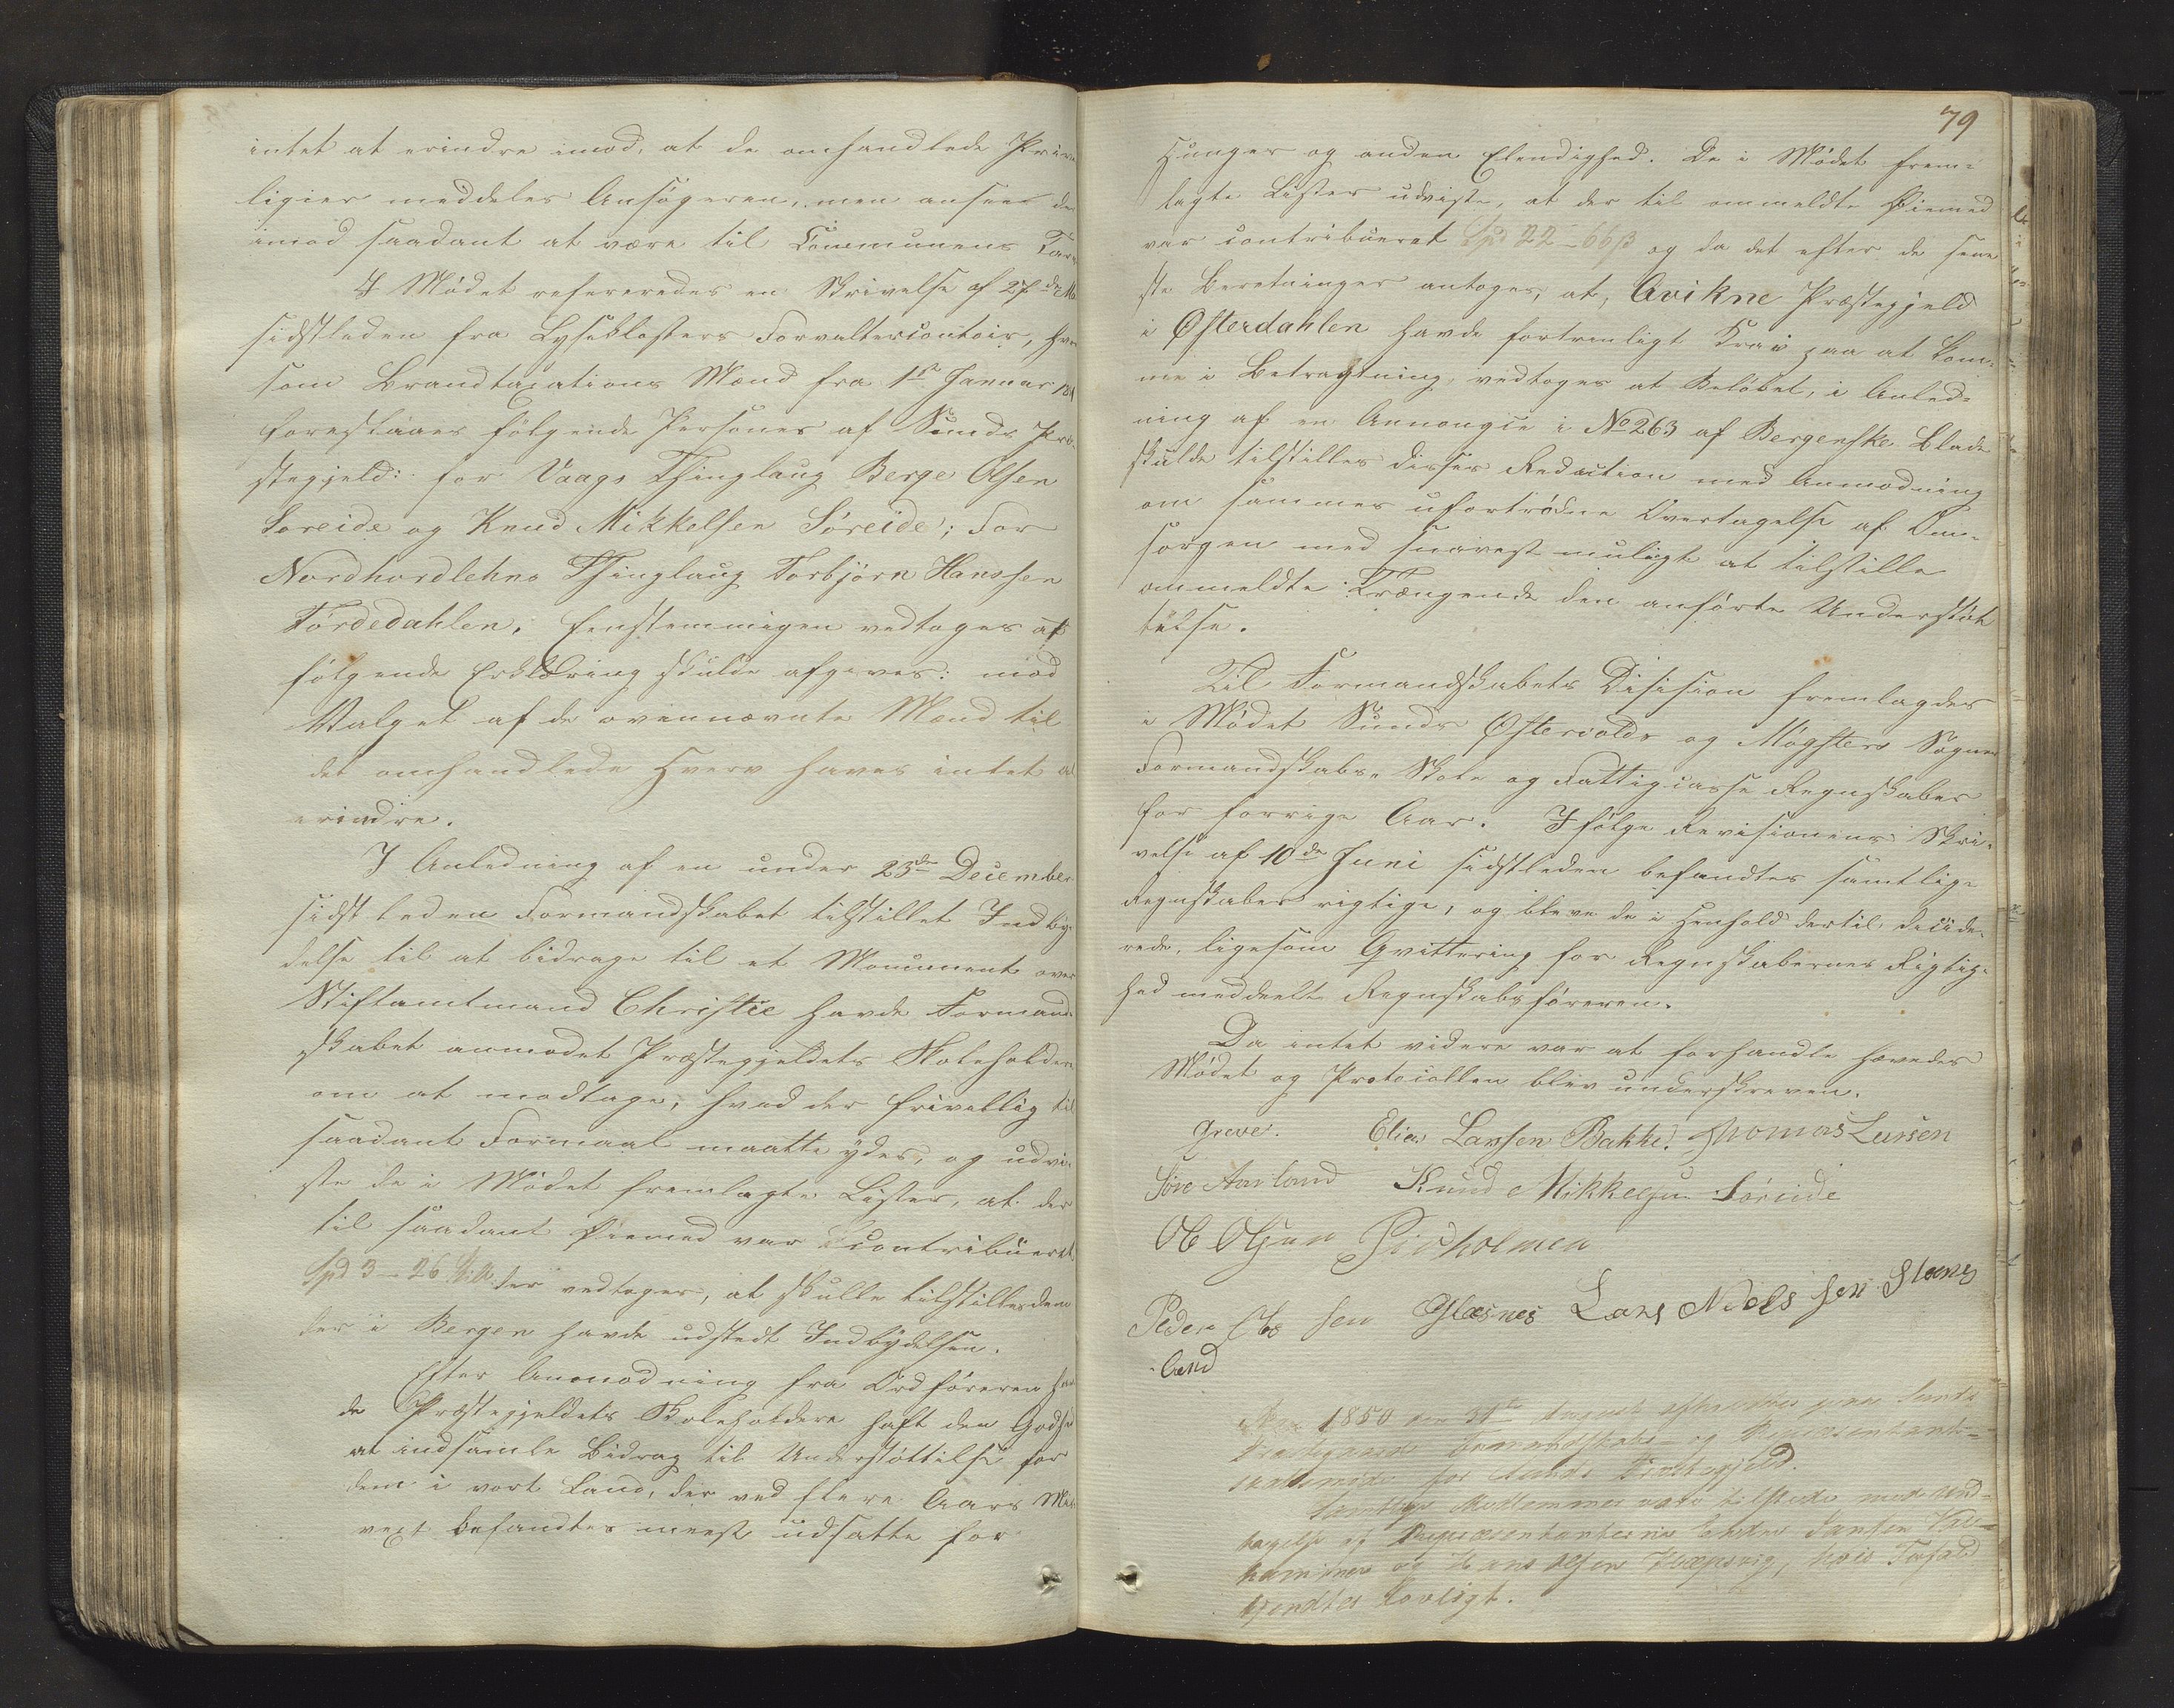 intet at erindre imod, at de omhandlede Privi
ligier meddeles Ansøgeren, men ansees der
imod saadant at være til Communens Tarv
I Mødet refereredes en Skrivelse af 27de
sidstleden fra Lyseklosters Forvaltercontoir, hvor
som Brandtaxations Mænd fra 1ste Januar
foreslaaes følgende Personer af Sunds Præ
stegjeld: for Vaags Thinglaug Berge Olsen
Soreide og Knud Mikkelsen Søreide; for
Nordhordlehns Thinglaug Torbjørn Hanssen
Førdedahlen. Eenstemmigen vedtoges at
følgende Erklæring skulde afgives: mod
Valget af de ovennævnte Mænd til
det omhandlede Hverv haves intet at
erindre.
I Anledning af en under 23de December
sidstleden Formandskabet tilstillet Indby-
delse til at bidrage til et Monument over
Stiftamtmand Christie havde Formand-
skabet anmodet Præstegjeldets Skoleholdere
om at modtage, hvad der frivillig til
saadant Formaal maatte ydes, og udvi-
ste de i Mødet fremlagte Lister, at der
til saadant Øiemed var contribueret
Spd 3-26 der vedtoges, at skulle tilstilles dem
der i Bergen havde udstedt Indbydelsen.
Efter Anmodning fra Ordføreren hav
de Præstegjeldets Skoleholdere haft den Godhed
at indsamle Bidrag til Understøttelse for
dem i vort Land, der ved flere Aars Mis
vext befandtes meest udsatte for
79
Hunger og anden Elendighed. De i Mødet frem-
lagte Lister udviste, at der til ommeldte Øiemed
var contribueret Spd 22-66ß og da det efter de sene
ste Beretninger antoges, at, Qvikne Præstegjeld
i Østerdahlen havde fortrinligt Krav paa at kom-
me i Betragtning, vedtoges at Beløbet, i Anled-
ning af en Annongce i No 263 af Bergenske Blade
skulde tilstilles disses Redaction med Anmodning
om sammes ufortrødne Overtagelse af Om-
sorgen med snarest muligt at tilstille
ommeldte Trængende den anførte Understøt
telse.
Til Formandskabets Disision fremlagdes
i Mødet Sunds Østervolds og Møgsters Sogne
Formandskabs- Skole og Fattigcasse Regnskaber
for forrige Aar. Ifølge Revisionens Skri-
velse af 10de Juni sidstleden befandtes samtlige
Regnskaber rigtige, og bleve de i Henhold dertil decide-
rede, ligesom Qvittering for Regnskabernes Rigtig-
hed meddeelt Regnskabsføreren.
Da intet videre var at forhandle hævedes
Mødet og Protocollen blev underskreven.
Greve. Elias Larsen Bakke. Thomas Larsen
Knud Mikkelsen Søreide
Ole Olsen
Peder Ols sen Glæsnes Lars Niels sen Stens
land
Aar 1850 den 31te August afholdtes paa Sunds
Præstegaard Formandskabs- og Repræsentant-
skabsmøde for Sunds Præstegjeld.
Samtlige Medlemmer vare tilstede med und-
tagelse af Repræsentanterne Jansen
og Hans Olsen hvis Forfald
kjendtes Lovligt.